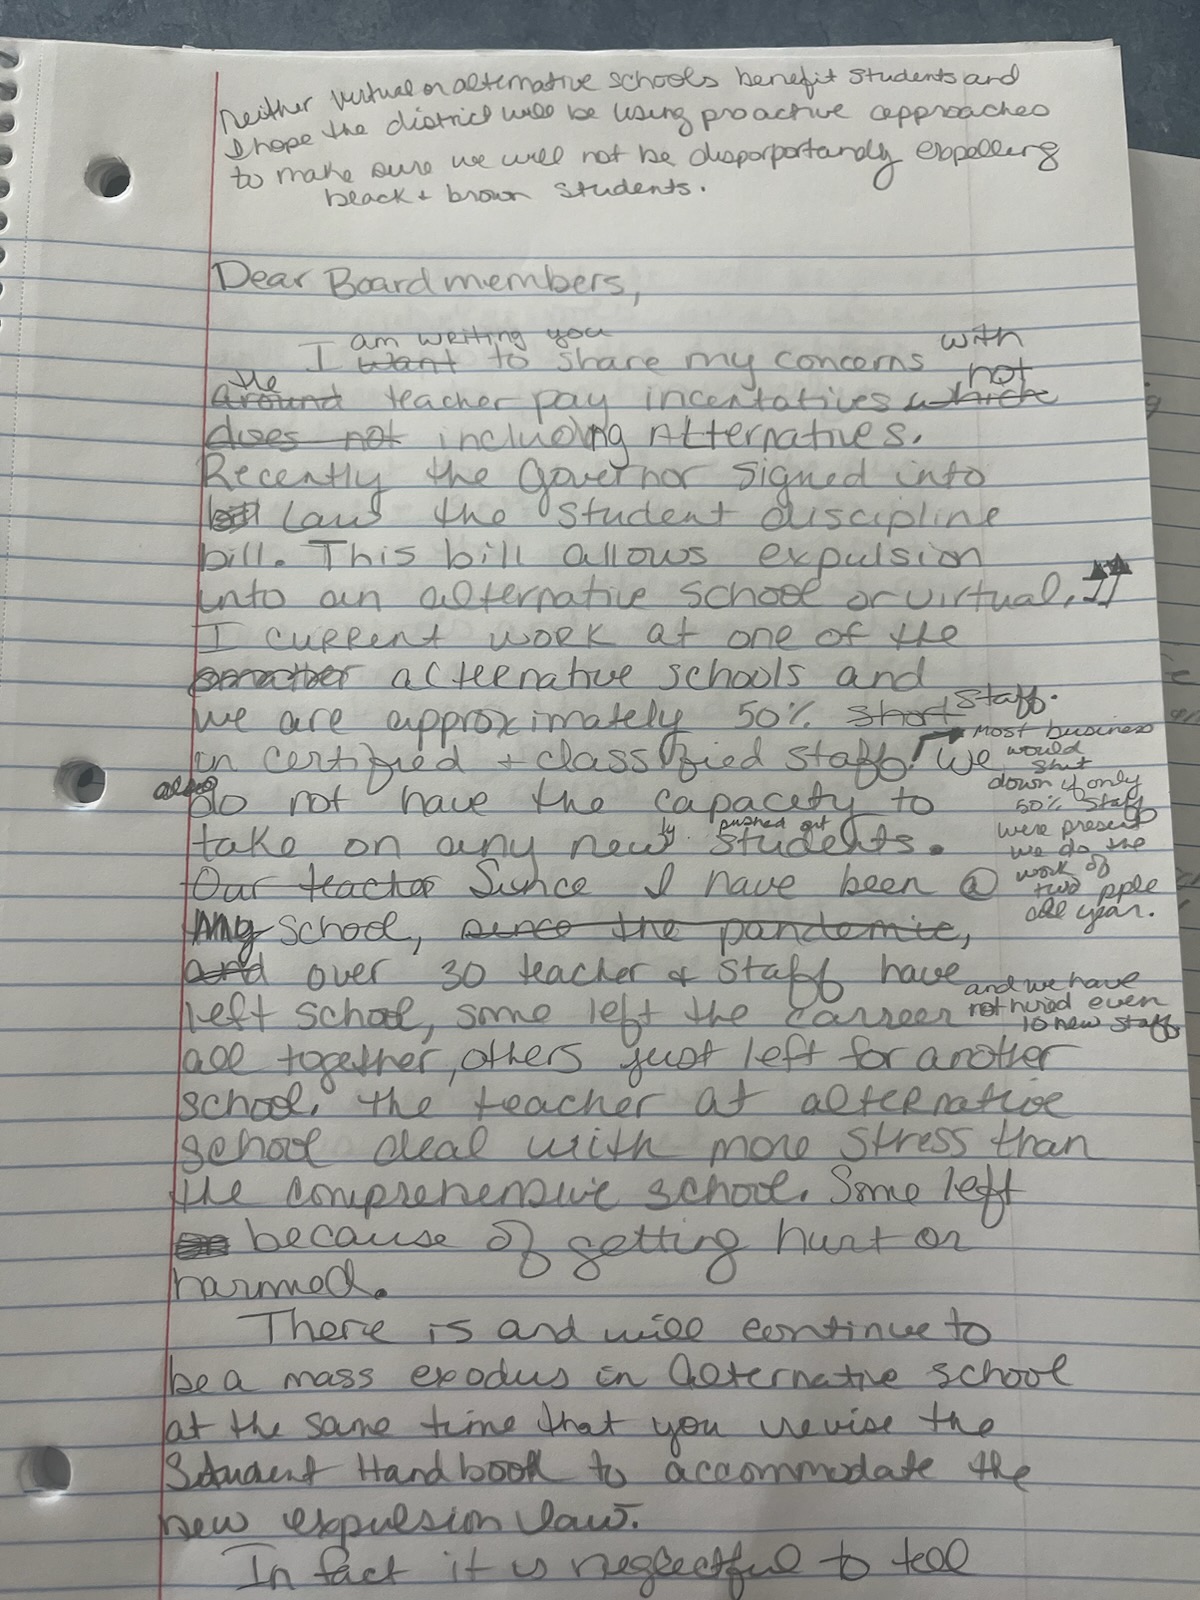 Neither virtual or alternative schools benefit students and
I hope the district will be using proactive approaches
to make sure we will not be disporportandly expelling
black + brown students.
Dear Board members,
am writing you
I want to share my concerns with
the
around teacher pay incentatives which not
does not including Alternatives.
Recently the Governor signed into
bill Law the student discipline
bill. This bill allows expulsion
into an alternative school or virtual.
I current work at one of the
alternative schools and
we are approximately 50% short staff.
in certified + classified staff! We
Most business
would
shut
down if only
50% staff
were present
we do the
work of
two pple
all year.
also
do not have the capacity to
ly pushed out
take on any new students.
Our teacher Since I have been @
My school, since the pandemic,
and over 30 teacher & staff have
left school, some left the carreer
and we have
not hired even
10 new staff
all together, others just left for another
school. The teacher at alternative
school deal with more stress than
the comprehensive school. Some left
because of getting hurt or
harmed.
There is and will continue to
be a mass exodus in alternative school
at the same time that you revise the
Student Handbook to accommodate the
new expulsion law.
In fact it is neglectful to tell